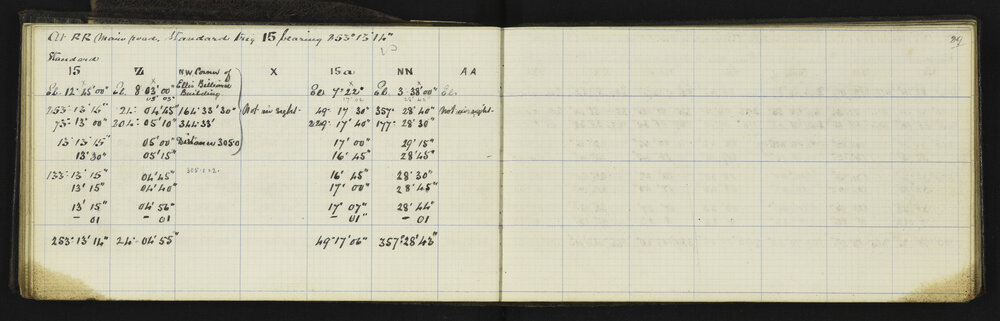 At RR Main road. Standard Trig 15 bearing 253° 13' 14" 29
Standard
15 Z NW Corner of X 15a NN AA
El. 12-45'00" El. 8 03'00" Ellis Billions El. 7-22" El. 3-38'00" El.
Building
253-13'15" 24- 04'45" 164-33'30" Not in sight 49- 17 30" 357- 28'40" Not in sight
73- 13'00" 204-05'10" 344-33' 229- 17'40" 177- 28'30"
13-13'15" 05'00" Distance 305.0 17'00" 29'15"
13'30" 05'15" 16'45" 28'45"
133-13'15" 04'45" 16'45" 28'30"
13'15" 04'40" 17'00" 28'45"
13'15" 04'56" 17'07" 28'44"
- 01 - 01 - 01" - 01
253-13'14" 24-04'55" 49-17'06" 357-28'43"